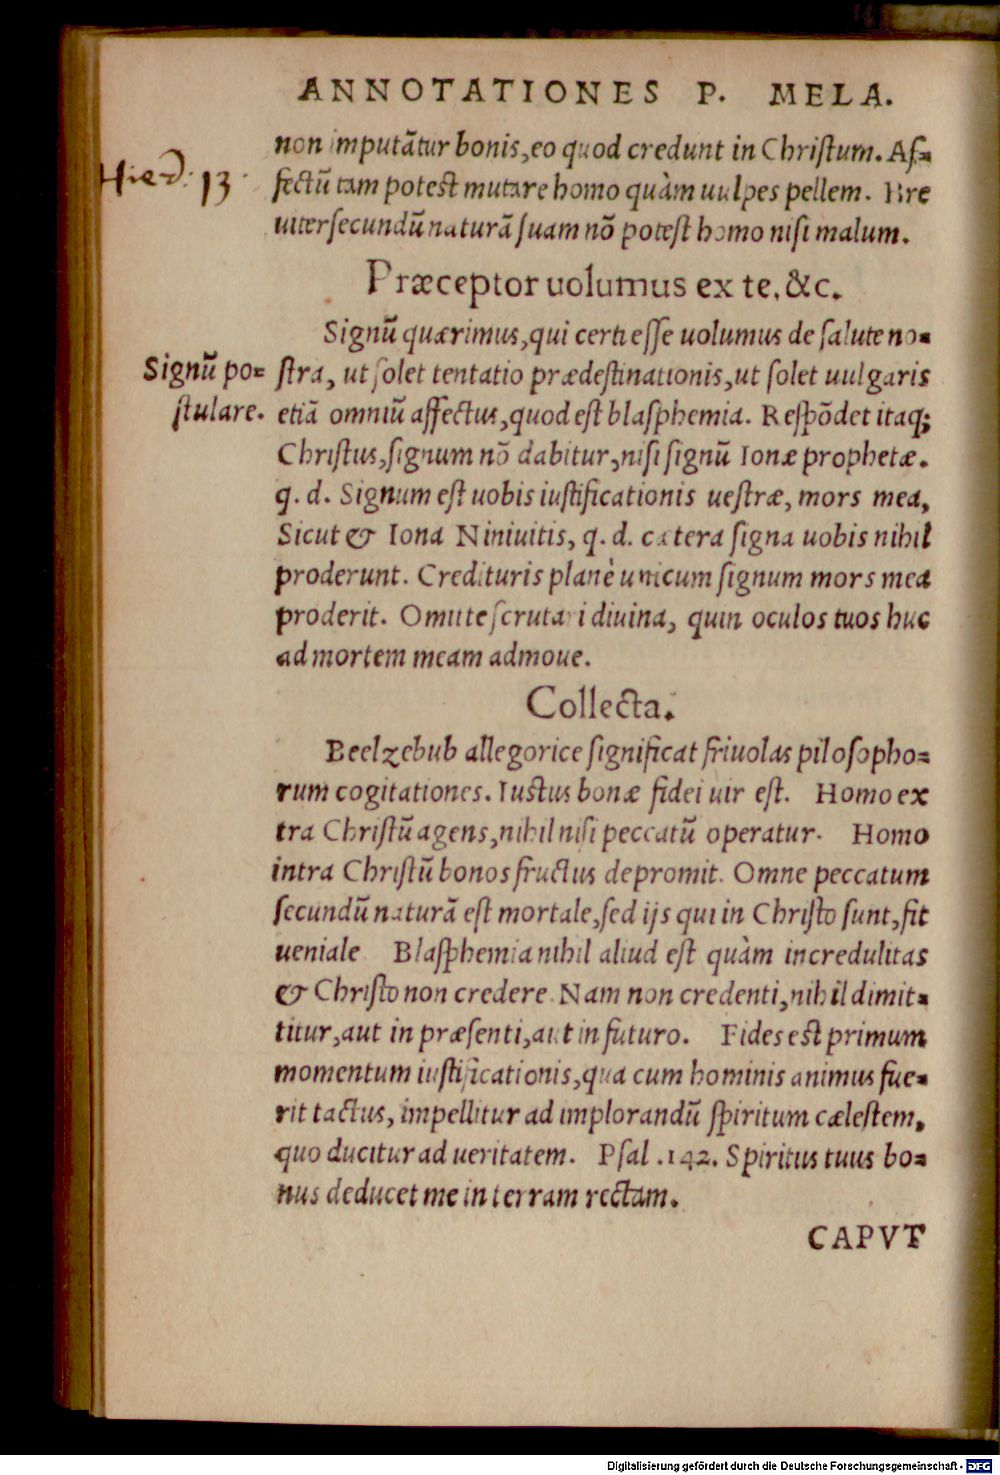 ANNOTATIONES P. MELA.
non imputãtur bonis, eo quod credunt in Christum. Af=
fectũ tam potest mutare homo quàm uulpes pellem. Bre
uiter secundũ naturã suam nõ potest homo nisi malum.
Hier. 13.
Præceptor uolumus ex te, &c.
Signũ quærimus, qui certi esse uolumus de salute no=
stra, ut solet tentatio prædestinationis, ut solet uulgaris
etiã omniũ affectus, quod est blasphemia. Respõdet itaq;
Christus, signum nõ dabitur, nisi signũ Ionæ prophetæ.
q. d. Signum est uobis iustificationis uestræ, mors mea,
Sicut & Iona Niniuitis, q. d. cætera signa uobis nihil
proderunt. Credituris planè unicum signum mors mea
proderit. Omitte scrutari diuina, quin oculos tuos huc
ad mortem meam admoue.
Signũ po=
stulare.
Collecta.
Beelzebub allegorice significat friuolas pilosopho=
rum cogitationes. Iustus bonæ fidei uir est. Homo ex
tra Christũ agens, nihil nisi peccatũ operatur. Homo
intra Christũ bonos fructus depromit. Omne peccatum
secundũ naturã est mortale, sed ijs qui in Christo sunt, fit
ueniale Blasphemia nihil aliud est quàm incredulitas
& Christo non credere. Nam non credenti, nihil dimit=
titur, aut in præsenti, aut in futuro. Fides est primum
momentum iustificationis, qua cum hominis animus fue=
rit tactus, impellitur ad implorandũ spiritum cælestem,
quo ducitur ad ueritatem. Psal .142. Spiritus tuus bo=
nus deducet me in terram rectam.
CAPVT
Digitalisierung gefördert durch die Deutsche Forschungsgemeinschaft - DFG